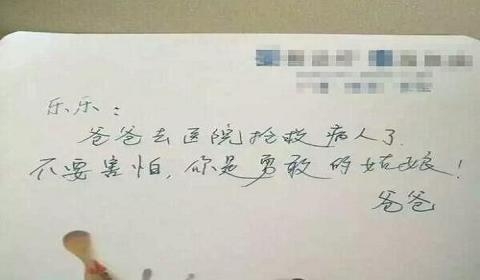 乐乐：
爸爸去医院抢救病人了
不要害怕，你是勇敢的姑娘！
爸爸